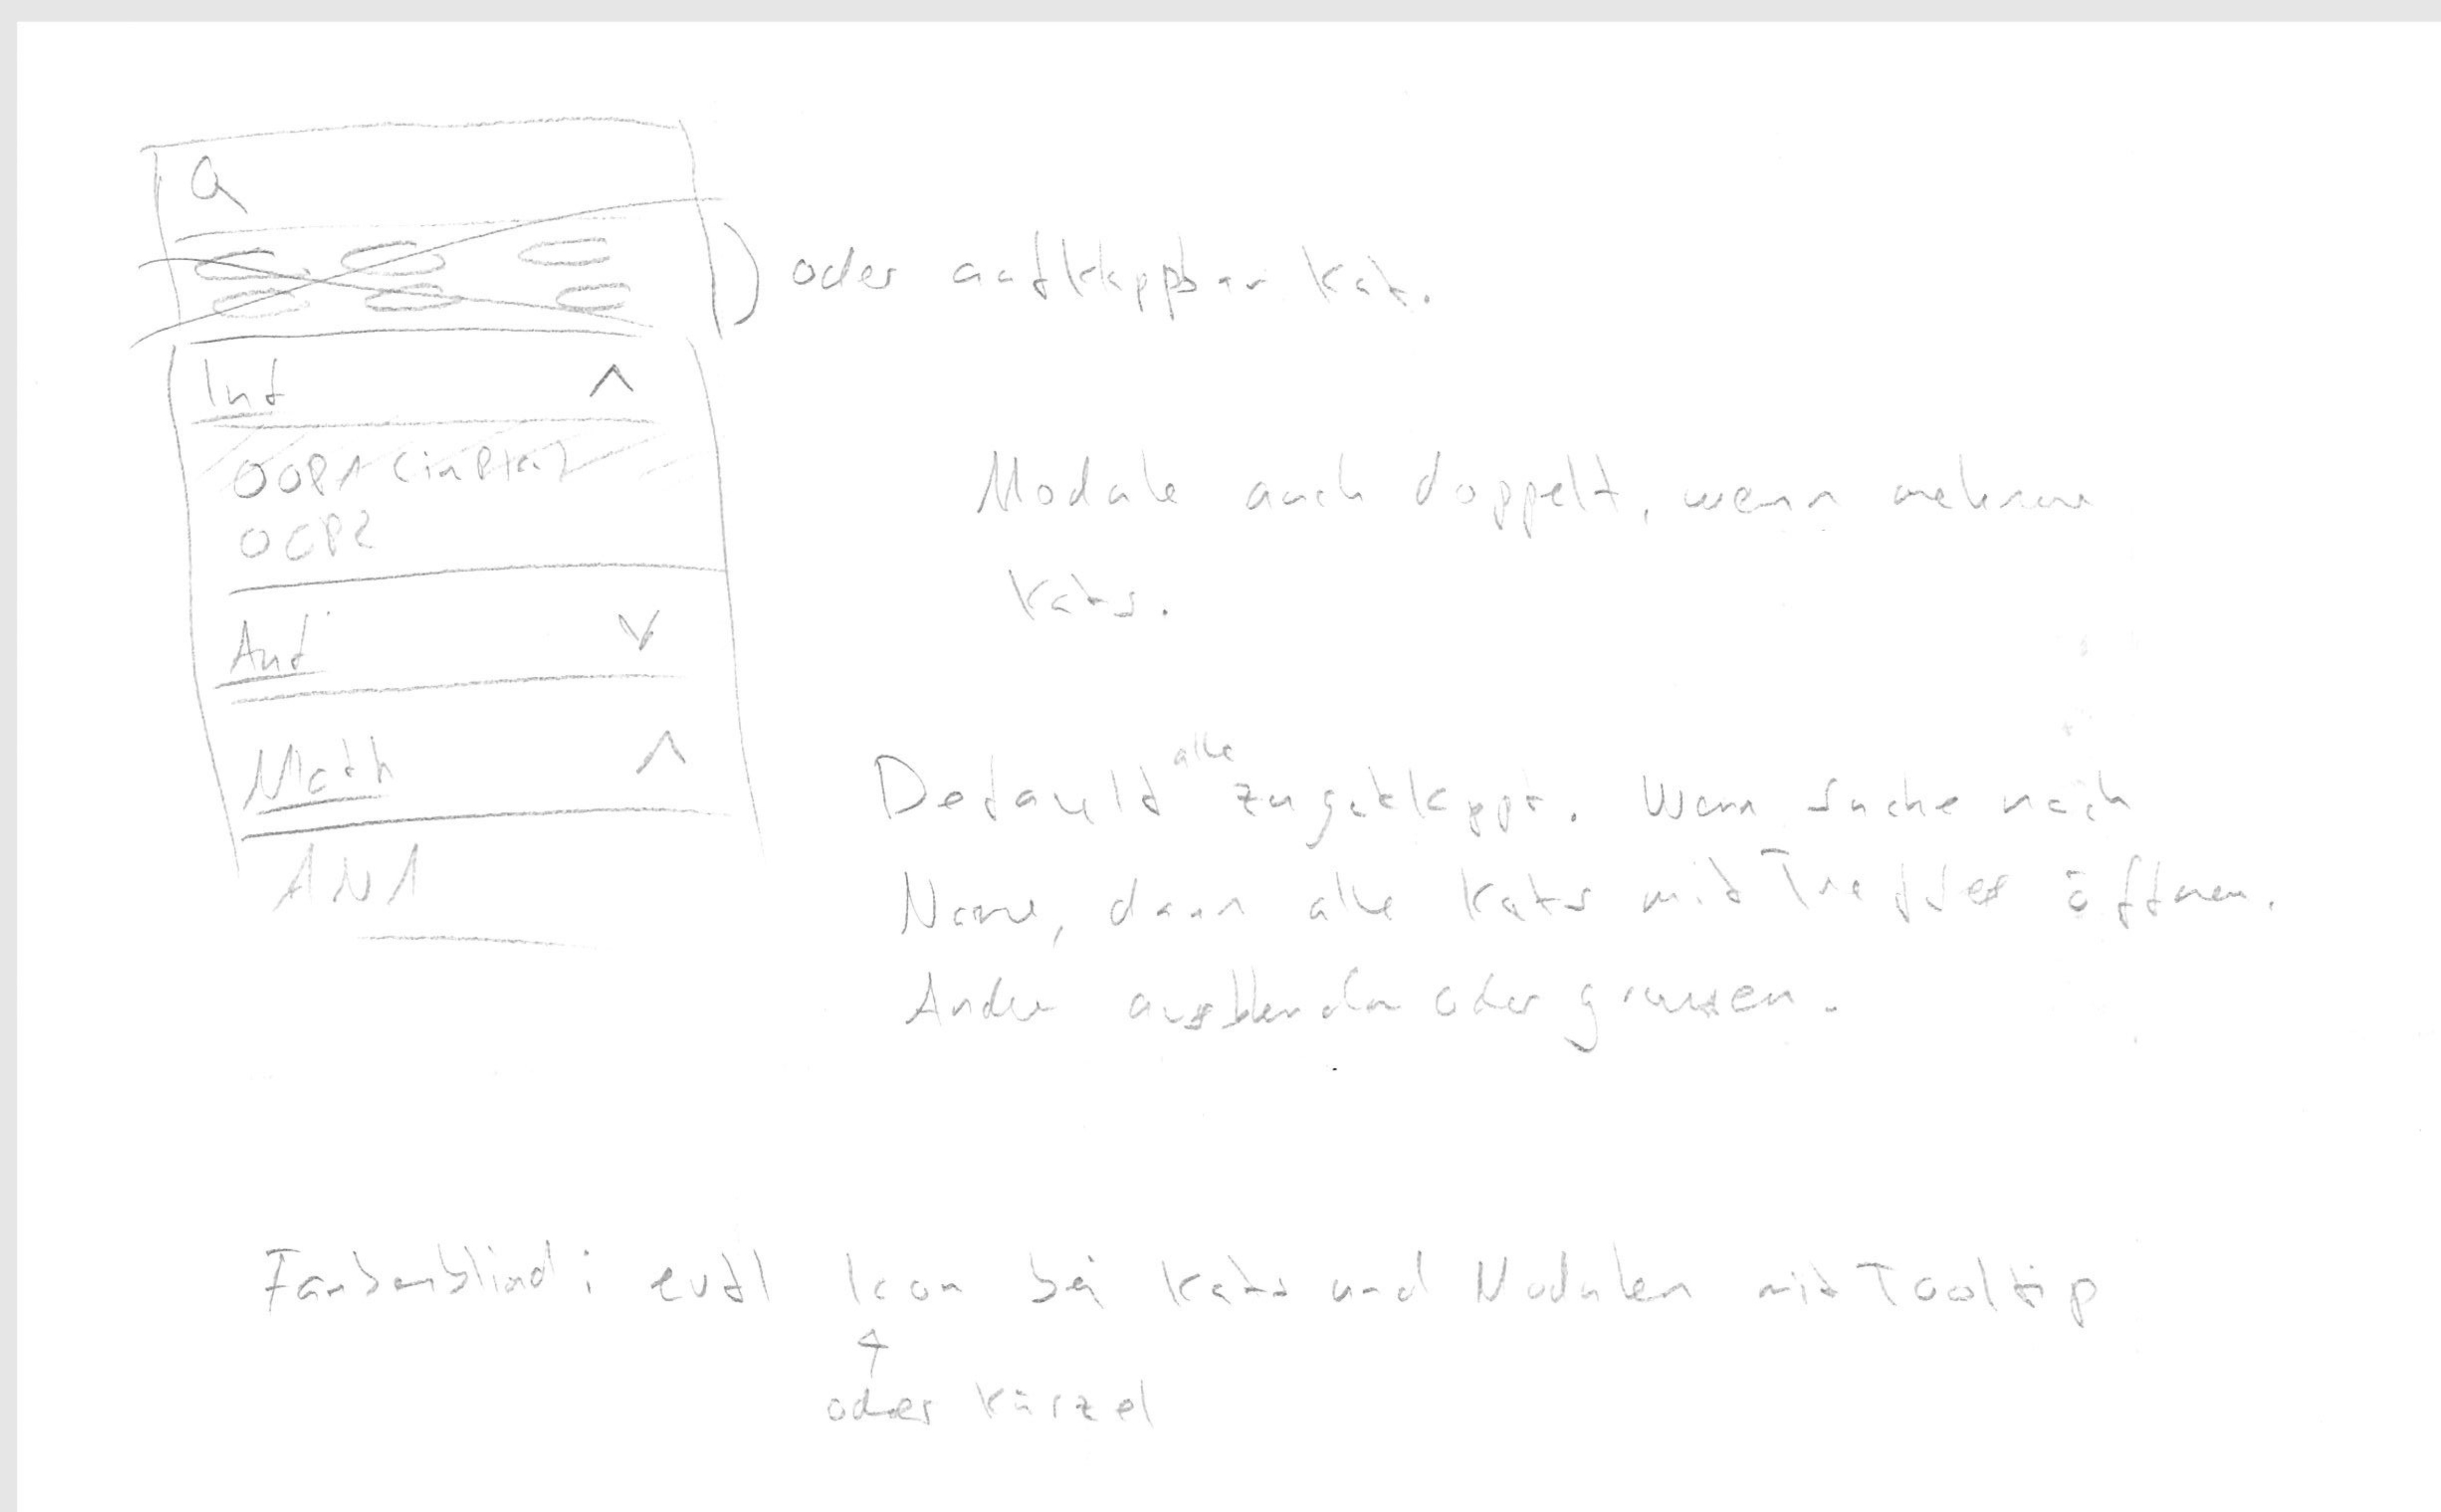 oder aufklappbar Kat.
Inf
OOP1 (in Plan)
OOP2
Auf
Math
AN1
Module auch doppelt, wenn mehrere
Kats.
Default alle zugeklappt. Wenn Suche nach
Name, dann alle Kats mit Treffer öffnen.
Andere ausblenden oder grausen.
Farbenblind: evtl Icon bei Kats und Modulen mit Tooltip
oder Kürzel